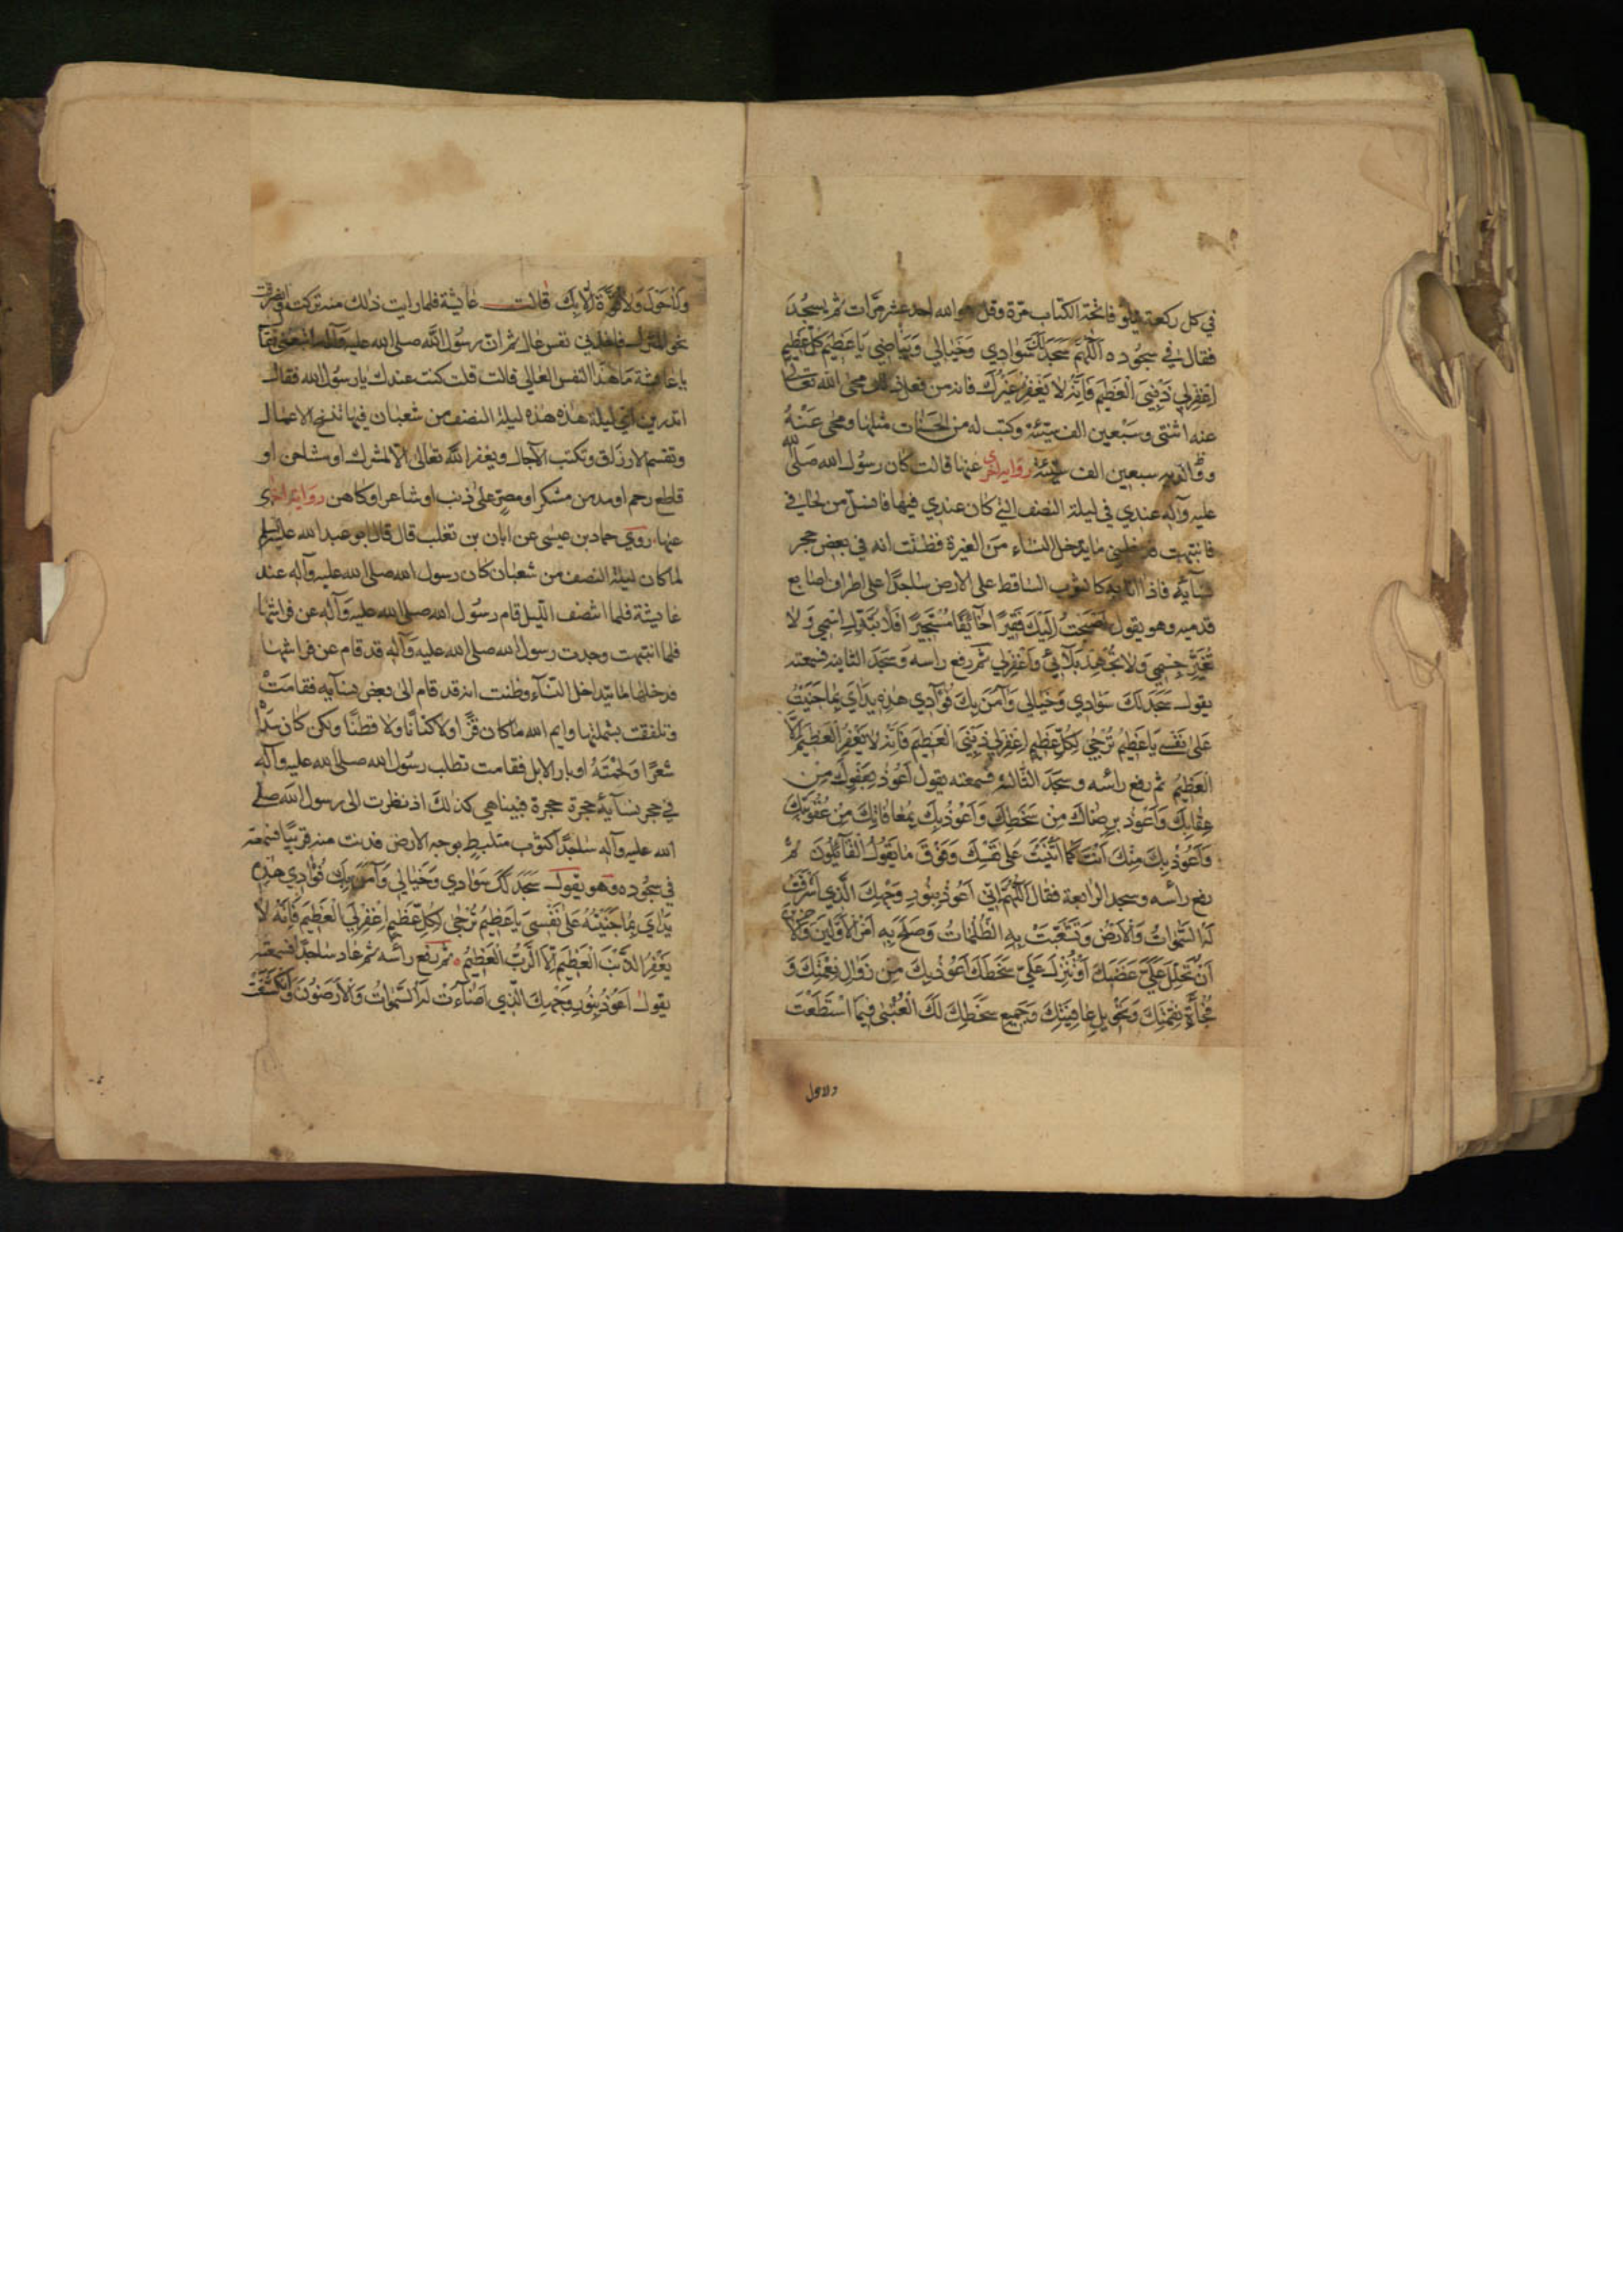 في كل ركعة يتلو فاتحة الكتاب مرة وقل هو الله احد عشر مرّات ثم يسجُدَ
فقال في سجُوده اَللّٰهُمَّ سَجَدَ لَكَ سَوادِي وَخَيالِي وَبَياضِي يَا عَظيمَ كُلِّ عَظيمٍ
اِغْفِرْلِي ذَنْبِيَ الْعَظيمَ فَاِنَّهُ لَا يَغْفِرُ غَيْرُكَ فانه من فعل ذلك محى الله تعالى
عنه اثنتى وسَبْعين الف سيّئة وكتب له من الحَسَنات مثلها ومحى عَنْهُ
و والديه سبعين الف سيّئة رواية اخرى عنها قالت كان رسُول الله صَلّى الله
عليه وآله عندي في ليلة النصف التي كان عندي فيها فانسلّ من لحافي
فانتبهت فدخلني ما يدخل النسَاء مَن الغيرة فظننت انه في بعض حجر
نسَايّه فاذا انا به كالثوب السَاقط على الارض سَاجدًا على اطراف اصَابع
قدميه وهو يقول اَصْبَحْتُ اِلَيْكَ فَقيرًا خَائِفًا مُسْتَجيرًا فَلَا تُبَدِّلْ اِسْمِي وَلَا
تُغَيِّرْ جِسْمِي وَلَا تُجْهِدْ بَلَائِي وَاغْفِرْلِي ثمّ رفع راسه وَسَجَدَ الثانية فسمعته
يقول سَجَدَ لَكَ سَوَادِي وَخَيَالِي وَآمَنَ بِكَ فُؤَادِي هٰذِهِ يَدَايَ بِمَا جَنَيْتُ
عَلىٰ نَفْسِي يَا عَظيمُ تُرْجىٰ لِكُلِّ عَظيمٍ اِغْفِرْلِي ذَنْبِيَ الْعَظيمَ فَاِنَّهُ لَا يَغْفِرُ الْعَظيمَ اِلَّا
الْعَظيمُ ثم رفع راسه وسَجَدَ الثالثة فسمعته يقول اَعُوذُ بِعَفْوِكَ مِنْ
عِقَابِكَ وَاَعُوذُ بِرِضَاكَ مِنْ سَخَطِكَ وَاَعُوذُ بِكَ بِمُعَافَاتِكَ مِنْ عُقُوبَتِكَ
وَاَعُوذُ بِكَ مِنْكَ اَنْتَ كَمَا اَثْنَيْتَ عَلىٰ نَفْسِكَ وَفَوْقَ مَا يَقُولُ الْقَآئِلُونَ ثم
رفع راسه وسجد الرابعة فقال اَللّٰهُمَّ اِنِّي اَعُوذُ بِنُورِ وَجْهِكَ الَّذِي اَشْرَقَتْ
لَهُ السَّمٰوَاتُ وَالْاَرْضُ وَتَشَعَّبَتْ بِهِ الظُّلُمَاتُ وَصَلُحَ بِهِ اَمْرُ الْاَوَّلينَ وَالْآخِرِينَ
اَنْ تُحِلَّ عَلَيَّ غَضَبَكَ اَوْ تُنْزِلَ عَلَيَّ سَخَطَكَ اَعُوذُ بِكَ مِنْ زَوَالِ نِعْمَتِكَ وَ
فُجْأَةِ نِقْمَتِكَ وَتَحْوِيلِ عَافِيَتِكَ وَجَمِيعِ سَخَطِكَ لَكَ الْعُتْبىٰ فِيمَا اسْتَطَعْتُ
ولاحول
وَلَا حَوْلَ وَلَا قُوَّةَ اِلَّا بِكَ قالت عَايشة فلما رايت ذلك منه تركته وانصرفت
نحو المنزل فاخذني نفس عال ثم ان رسُول الله صلى الله عليه وآله
يا عايشة مَا هذا النفس العالي قالت قلت كنت عندك يا رسُول الله فقال
اتدرين اىّ ليلة هذه هذه ليلة النصف من شعبان فيها تنسخ الاعمال
وتقسم الارزاق وتكتب الآجال ويغفر اللّه تعالى الا لمشرك او مشاحن او
قاطع رحم او مدمن مسكر او مصرّ على ذنب او شاعر او كاهن رواية اخرى
عنها روي حماد بن عيسى عن ابان بن تغلب قال قال ابو عبد الله عليه السلم
لما كان ليلة النصف من شعبان كان رسول الله صلى الله عليه وآله عند
عَايشة فلما انتصف الليل قام رسُول الله صلى الله عليه وَآله عن فراشها
فلما انتبهت وجدت رسول الله صلى الله عليه وآله قد قام عن فراشها
فدخلها ما يتداخل النسَآء وظنت انه قد قام الى بعض نسَآيه فقامَتْ
وتلفقت بشملتها وايم الله ما كان قزًّا ولا كتانًا ولا قطنًا ولكن كان سَدَاهُ
شَعرًا وَلحْمَتَهُ اوبار الابل فقامت تطلب رسُول الله صلى الله عليه وآله
في حجر نسَآيه حجرة حجرة فبينا هي كذلك اذ نظرت الى رسول الله صلى
الله عليه وآله سَاجدًا كثوب متلبط بوجه الارض فدنت منه قريبًا فسمعته
في سجُوده وهو يقول سَجَدَ لَكَ سَوَادِي وَخَيَالِي وَآمَنَ بِكَ فُؤَادِي هٰذِهِ
يَدَايَ بِمَا جَنَيْتُهُ عَلىٰ نَفْسِي يَا عَظيمُ تُرْجىٰ لِكُلِّ عَظيمٍ اِغْفِرْلِيَ الْعَظيمَ فَاِنَّهُ لَا
يَغْفِرُ الذَّنْبَ الْعَظيمَ اِلَّا الرَّبُّ الْعَظيمُ ثم رفع راسَه ثم عاد سَاجدًا فسمعته
يقول اَعُوذُ بِنُورِ وَجْهِكَ الَّذِي اَضَآءَتْ لَهُ السَّمٰوَاتُ وَالْاَرَضُونَ وَانْكَشَفَتْ